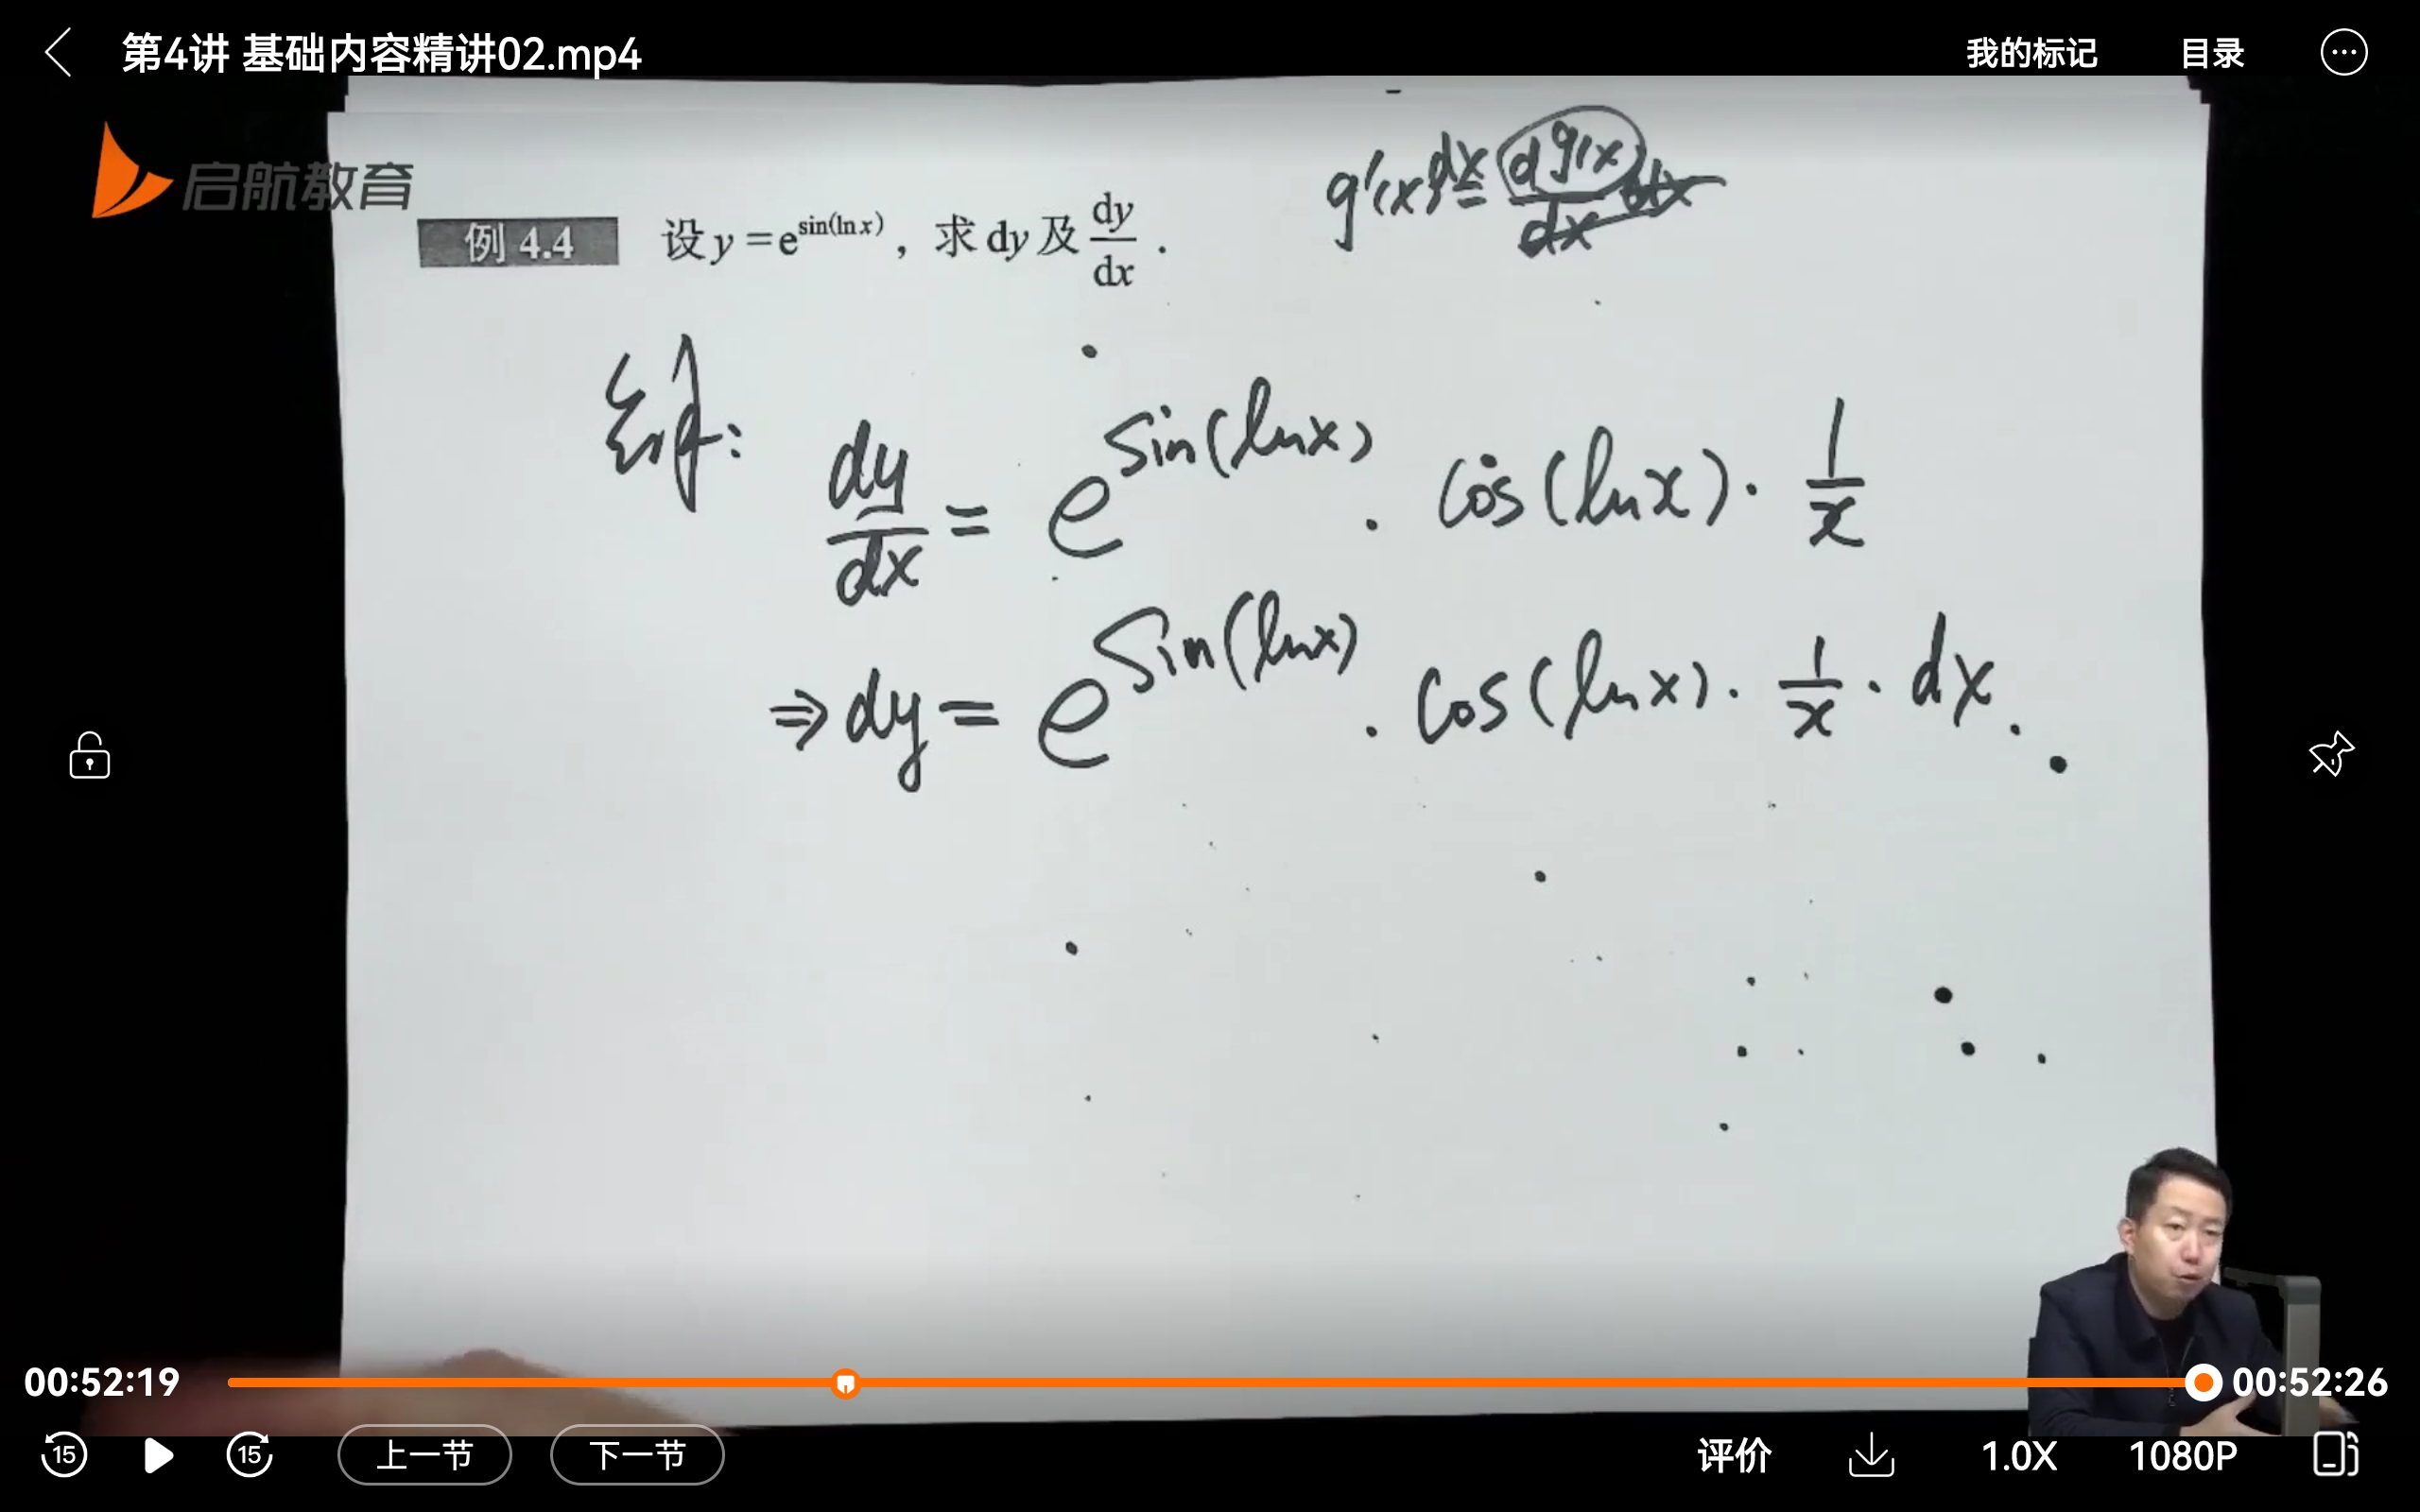 第4讲 基础内容精讲02.mp4
我的标记
目录
启航教育
g'(x)dx = dg(x)/dx dx
例 4.4 设 y = e^sin(ln x) , 求 dy 及 dy/dx .
dy/dx = e^sin(lnx) · cos(lnx) · 1/x
⇒ dy = e^sin(lnx) · cos(lnx) · 1/x · dx.
00:52:19
00:52:26
15
15
上一节
下一节
评价
1.0X
1080P